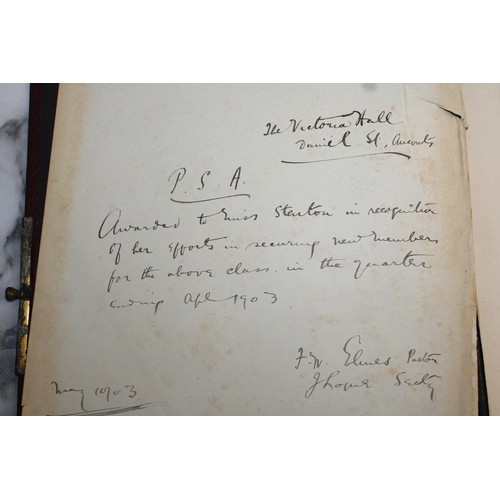 The Victoria Hall
Daniel St, Ancoats
P. S. A.
Awarded to Miss Stenton in recognition
of her efforts in securing new members
for the above class in the quarter
ending Apl 1903
F. W. Elmes Pastor
J Logue Secty
May 1903